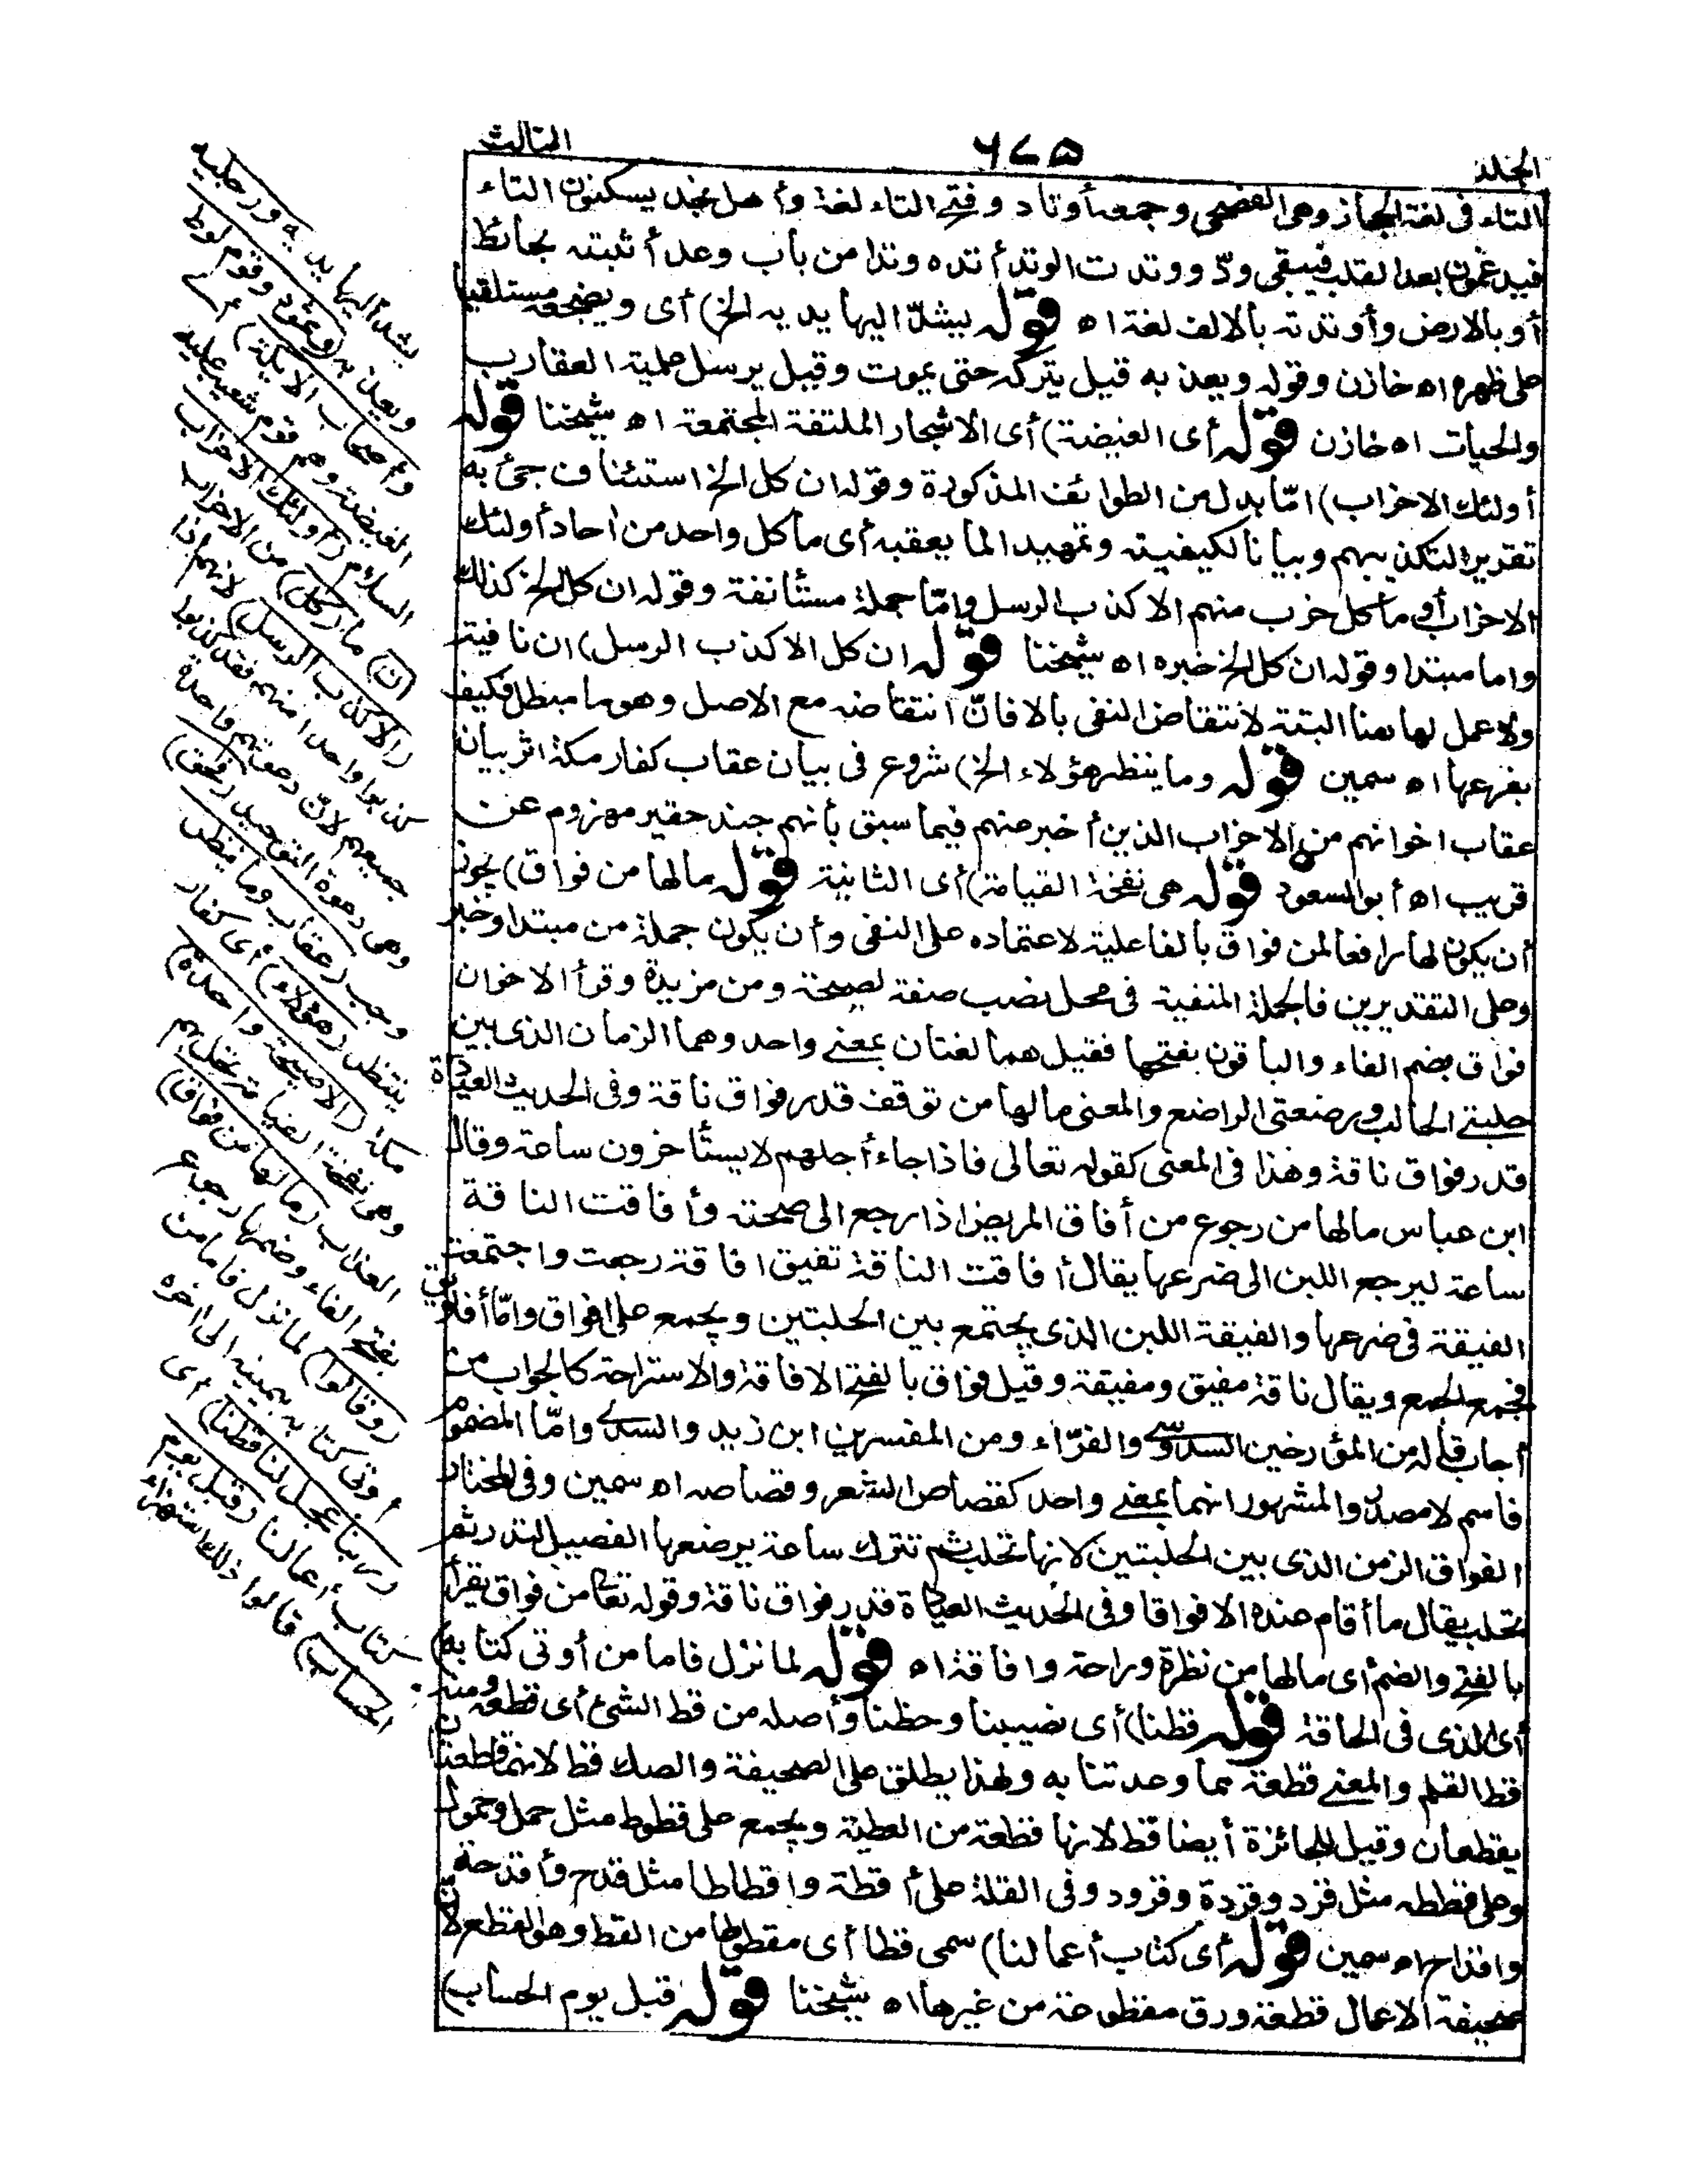 الجلد ٦٧٥ الثالث
التاء فى لغة الحجاز وهى الفصحى وجمعه أوتاد وفتح التاء لغة وأهل نجد يسكنون التاء
فيدغمون بعد القلب فيبقى ودّ ووتدت الوتد أتده وتدا من باب وعد أثبته بحائط
أو بالارض وأوتدته بالالف لغة اه قوله يشدّ اليها يديه الخ) أى ويضجعه مستلقيا
على ظهره اه خازن وقوله ويعذبه قيل يتركه حتى يموت وقيل يرسل عليه العقارب
والحيات اه خازن قوله أى الغيضة) أى الاشجار الملتفة المجتمعة اه شيخنا قوله
أولئك الاحزاب) امّا بدل من الطوائف المذكورة وقوله ان كل الخ استئناف جئ به
تقريرا لتكذيبهم وبيانا لكيفيته وتمهيدا لما يعقبه أى ما كل واحد من أحاد أولئك
الاحزاب أو ما كل حزب منهم الا كذب الرسل وامّا جملة مستأنفة وقوله ان كل الخ كذلك
واما مبتدا وقوله ان كل الخ خبره اه شيخنا قوله ان كل الا كذب الرسل) ان نافية
ولا عمل لها هنا البتة لانتقاض النفى بالا فانّ انتقاضه مع الاصل وهو ما مبطل فكيف
بفرعها اه سمين قوله وما ينظر هؤلاء الخ) شروع فى بيان عقاب كفار مكة اثر بيان
عقاب اخوانهم من الاحزاب الذين أخبر عنهم فيما سبق بأنهم جند حقير مهزوم عن
قريب اه أبو السعود قوله هى نفخة القيامة) أى الثانية قوله مالها من فواق) يجوز
أن يكون لها رافعا لمن فواق بالفاعلية لاعتماده على النفى وأن يكون جملة من مبتدا وخبر
وعلى التقديرين فالجملة المنفية فى محل نصب صفة لصيحة ومن مزيدة وقرأ الاخوان
فواق بضم الفاء والباقون بفتحها فقيل هما لغتان بمعنى واحد وهما الزمان الذى بين
حلبتى الحالب ورضعتى الراضع والمعنى مالها من توقف قدر فواق ناقة وفى الحديث العيادة
قدر فواق ناقة وهذا فى المعنى كقوله تعالى فاذا جاء أجلهم لا يستأخرون ساعة وقال
ابن عباس مالها من رجوع من أفاق المريض اذا رجع الى صحته وأفاقت الناقة
ساعة ليرجع اللبن الى ضرعها يقال أفاقت الناقة تفيق افاقة رجعت واجتمعت
الفيقة فى ضرعها والفيقة اللبن الذى يجتمع بين الحلبتين ويجمع على افواق وامّا أفاويق
فجمع الجمع ويقال ناقة مفيق ومفيقة وقيل فواق بالفتح الافاقة والاستراحة كالجواب من
أجاب قاله من المؤرخين السدوسى والفرّاء ومن المفسرين ابن زيد والسدى وامّا المضموم
فاسم لا مصدر والمشهور انهما بمعنى واحد كقصاص الشعر وقصاصه اه سمين وفى المختار
الفواق الزمن الذى بين الحلبتين لانها تحلب ثم تترك ساعة يرضعها الفصيل لتدر ثم
تحلب يقال ما أقام عنده الا فواقا وفى الحديث العيادة قدر فواق ناقة وقوله تعا من فواق يقرأ
بالفتح والضم أى مالها من نظرة وراحة وافاقة اه قوله لما نزل فاما من أوتى كتابه)
أى الذى فى الحاقة قوله قطنا) أى نصيبنا وحظنا وأصله من قط الشئ أى قطعه ومنه
قط القلم والمعنى قطعة مما وعدتنا به ولهذا يطلق على الصحيفة والصك قط لانهما قطعتان
يقطعان وقيل للجائزة أيضا قط لانها قطعة من العطية ويجمع على قطوط مثل حمل وحمول
وعلى قططه مثل قرد وقردة وقرود وفى القلة على أقطة واقطاطا مثل قدح وأقدحة
واقداح اه سمين قوله أى كتاب أعمالنا) سمى قطا أى مقطوطا من القط وهو القطع لانّ
صحيفة الاعمال قطعة ورق مقطوعة من غيرها اه شيخنا قوله قبل يوم الحساب)
يشد اليها يديه ورجليه
ويعذبه (وثمود وقوم لوط
وأصحاب الايكة) أى
الغيضة وهم قوم شعيب عليه
السلام (أولئك الاحزاب
ان) ما (كل) من الاحزاب
(الا كذب الرسل) لانهم اذا
كذبوا واحدا منهم فقد كذبوا
جميعهم لانّ دعوتهم واحدة
وهى دعوة التوحيد (فحق)
وجب (عقاب وما ينظر)
ينتظر (هؤلاء) أى كفار
مكة (الا صيحة واحدة)
وهى نفخة القيامة تحل بهم
العذاب (مالها من فواق)
بفتح الفاء وضمها رجوع
(وقالوا) لما نزل فاما من
أوتى كتابه بيمينه الى اخره
(ربنا عجل لنا قطنا) أى
كتاب أعمالنا (قبل يوم
الحساب) قالوا ذلك استهزاء